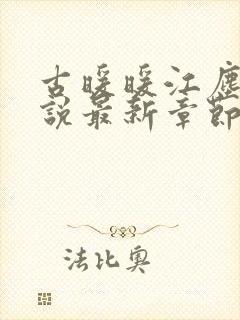 古暖暖江塵
說最新章節
法比奧